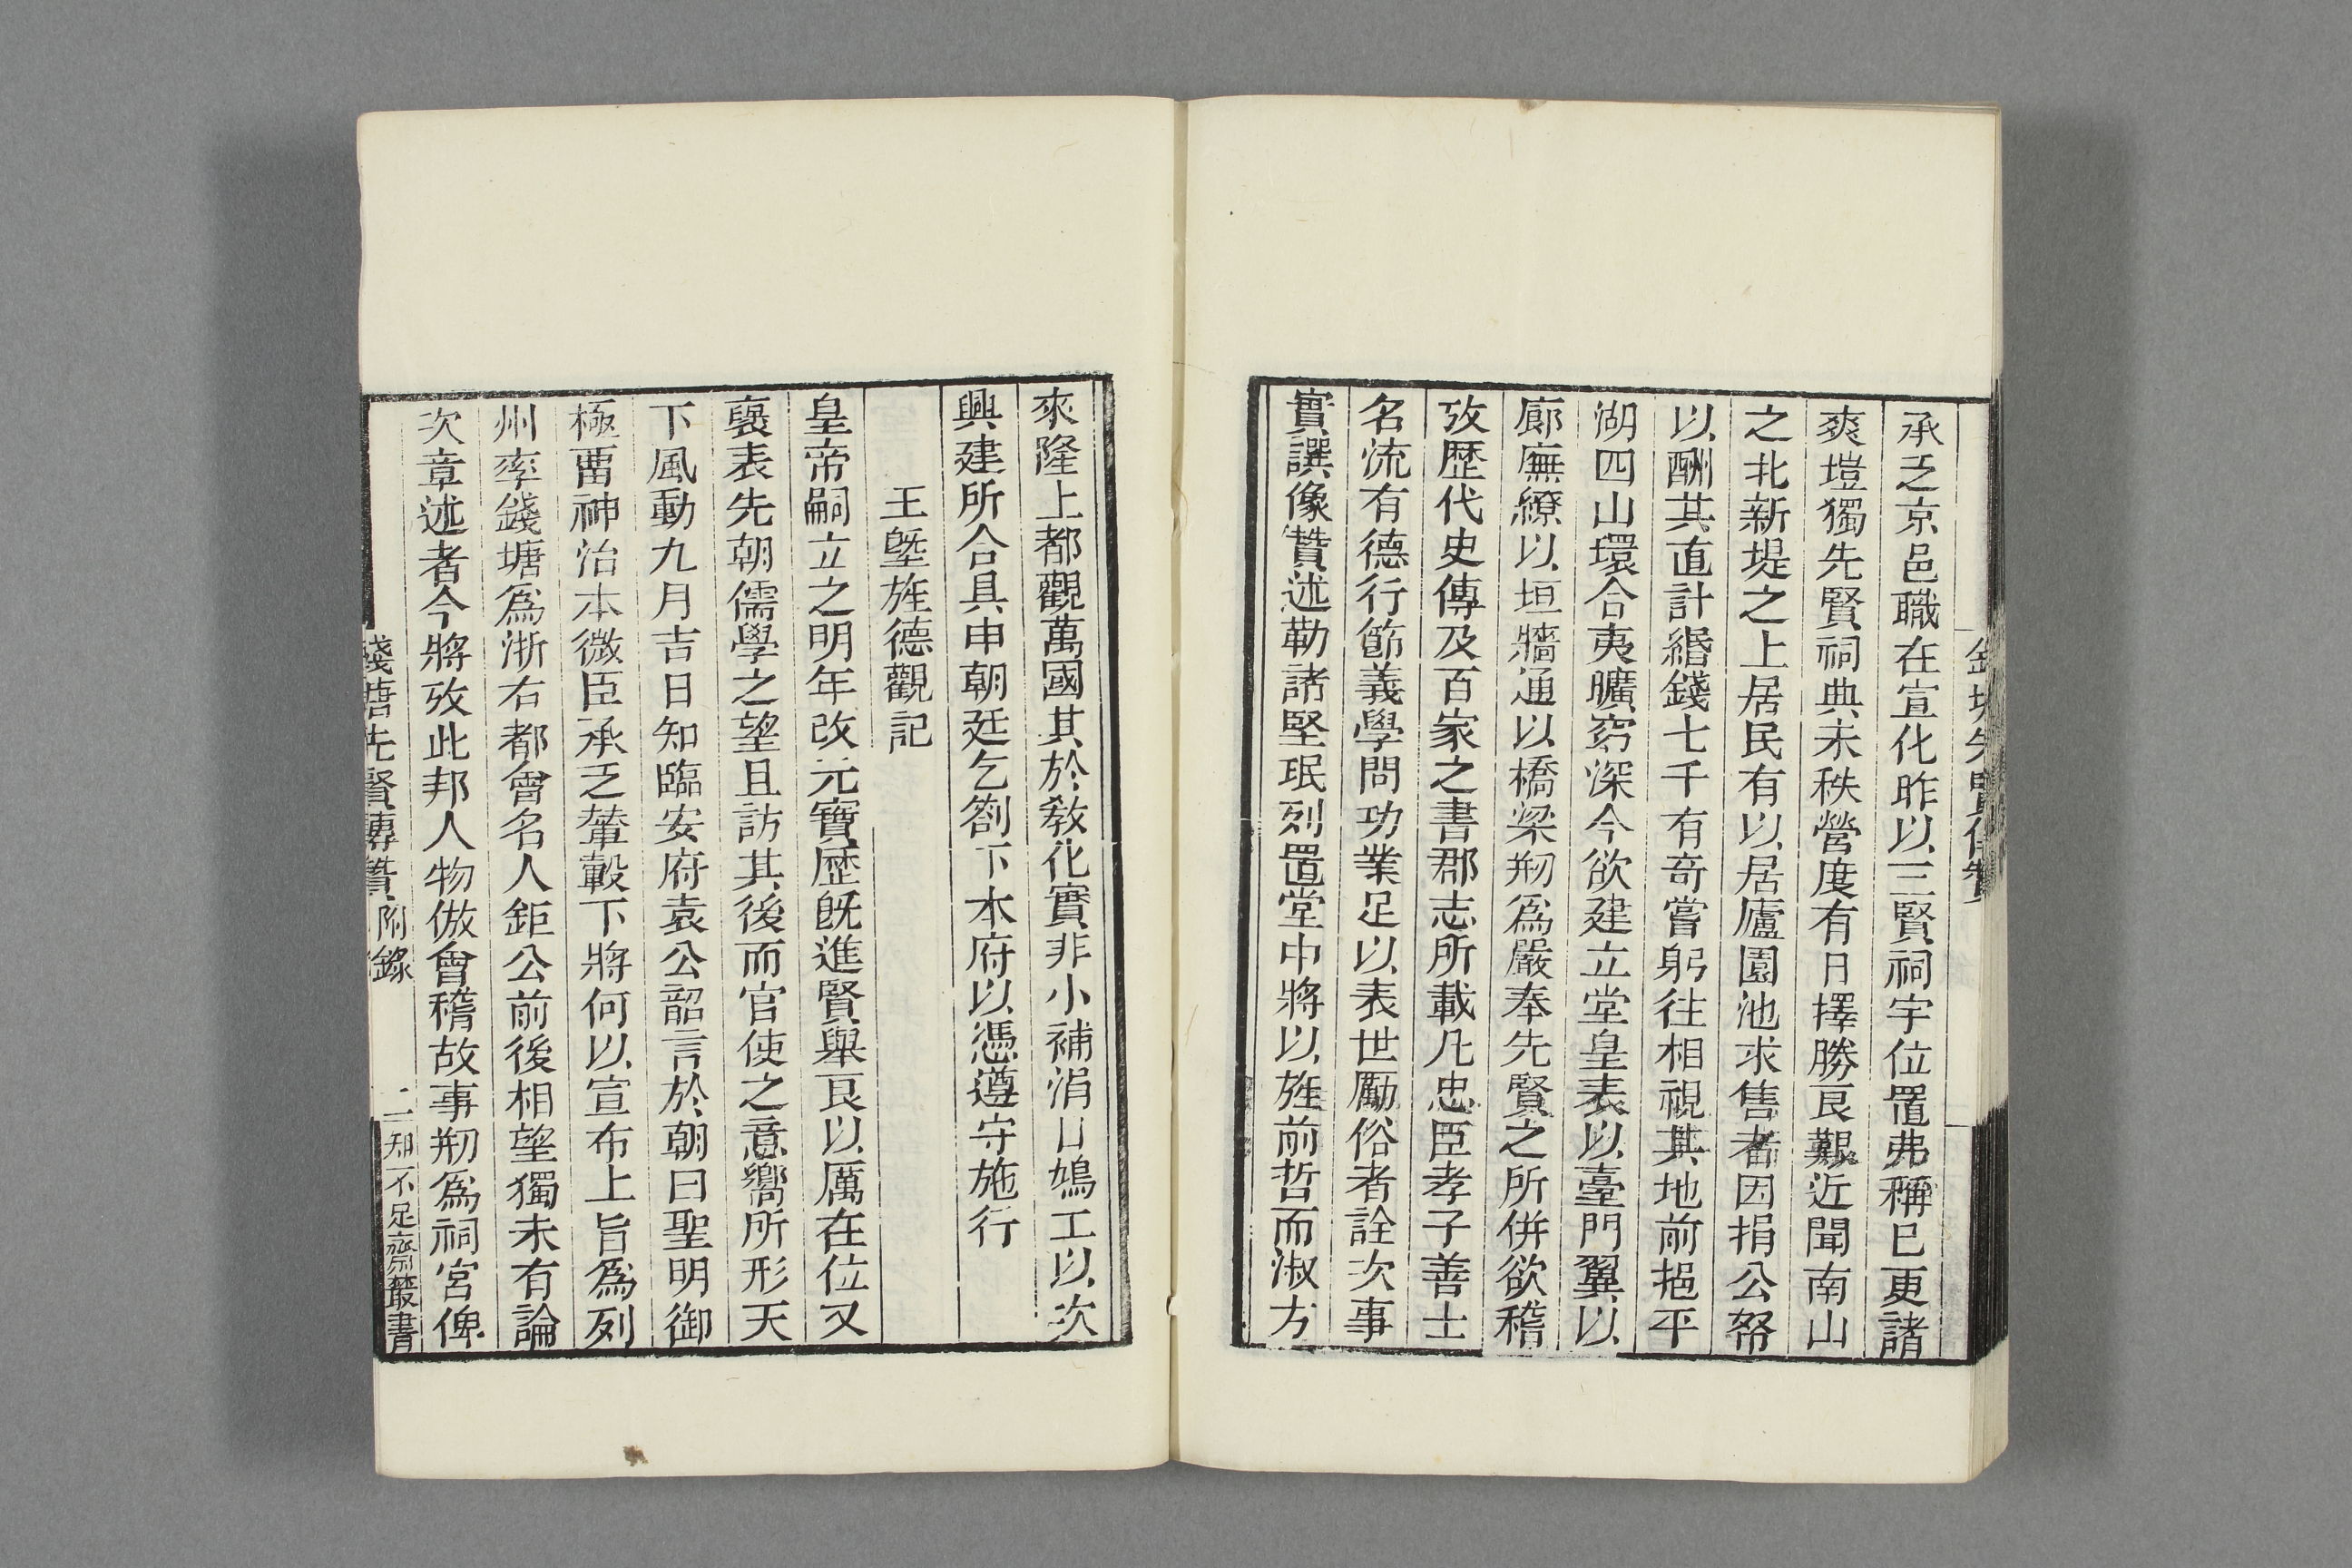 錢塘先賢傳贊
承乏京邑職在宣化昨以三賢祠宇位置弗稱已更諸
爽塏獨先賢祠典未秩營度有日擇勝良艱近聞南山
之北新堤之上居民有以居廬園池求售者因捐公帑
以酬其直計緡錢七千有奇嘗躬往相視其地前挹平
湖四山環合夷曠窈深今欲建立堂皇表以臺門翼以
廊廡繚以垣牆通以橋梁剏爲嚴奉先賢之所併欲稽
攷歷代史傳及百家之書郡志所載凡忠臣孝子善士
名流有德行節義學問功業足以表世勵俗者詮次事
實譔像贊述勒諸堅珉列置堂中將以旌前哲而淑方
來隆上都觀萬國其於敎化實非小補涓日鳩工以次
興建所合具申朝廷乞劄下本府以憑遵守施行
王塈旌德觀記
皇帝嗣立之明年改元寶歷旣進賢舉良以厲在位又
襃表先朝儒學之望且訪其後而官使之意嚮所形天
下風動九月吉日知臨安府袁公韶言於朝曰聖明御
極畱神治本微臣承乏輦轂下將何以宣布上旨爲列
州率錢塘爲浙右都會名人鉅公前後相望獨未有論
次章述者今將攷此邦人物倣會稽故事剏爲祠宮俾
錢塘先賢傳贊 附錄 二 知不足齋叢書